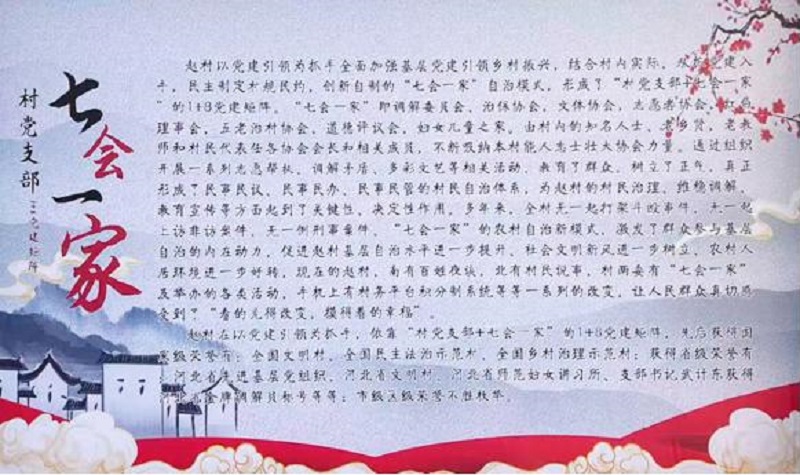 七会一家
村党支部
1+8党建矩阵
赵村以党建引领为抓手全面加强基层党建引领乡村振兴，结合村内实际，从抓党建入
手，民主制定村规民约，创新自制的“七会一家”自治模式，形成了“村党支部+七会一家
”的1+8党建矩阵。“七会一家”即调解委员会、治保协会、文体协会，志愿者协会，红白
理事会，五老治村协会，道德评议会，妇女儿童之家。由村内的知名人士、老乡贤，老教
师和村民代表任各协会会长和相关成员，不断吸纳本村能人志士壮大协会力量。通过组织
开展一系列志愿帮扶，调解矛盾、多彩文艺等相关活动，教育了群众，树立了正气，真正
形成了民事民议、民事民办、民事民管的村民自治体系，为赵村的村民治理、维稳调解，
教育宣传等方面起到了关键性，决定性作用。多年来，全村无一起打架斗殴事件，无一起
上访非访案件，无一例刑事案件。“七会一家”的农村自治新模式，激发了群众参与基层
自治的内在动力，促进赵村基层自治水平进一步提升、社会文明新风进一步树立，农村人
居环境进一步好转，现在的赵村，南有百姓夜谈，北有村民说事，村两委有“七会一家”
及举办的各类活动，手机上有村务平台积分制系统等等一系列的改变，让人民群众真切感
受到了“看的见得改变，摸得着的幸福”。
赵村在以党建引领为抓手，依靠“村党支部+七会一家”的1+8党建矩阵，先后获得国
家级荣誉有：全国文明村，全国民主法治示范村、全国乡村治理示范村；获得省级荣誉有
：河北省先进基层党组织、河北省文明村、河北省师范妇女讲习所、支部书记武计东获得
河北省金牌调解员称号等等；市级区级荣誉不胜枚举。